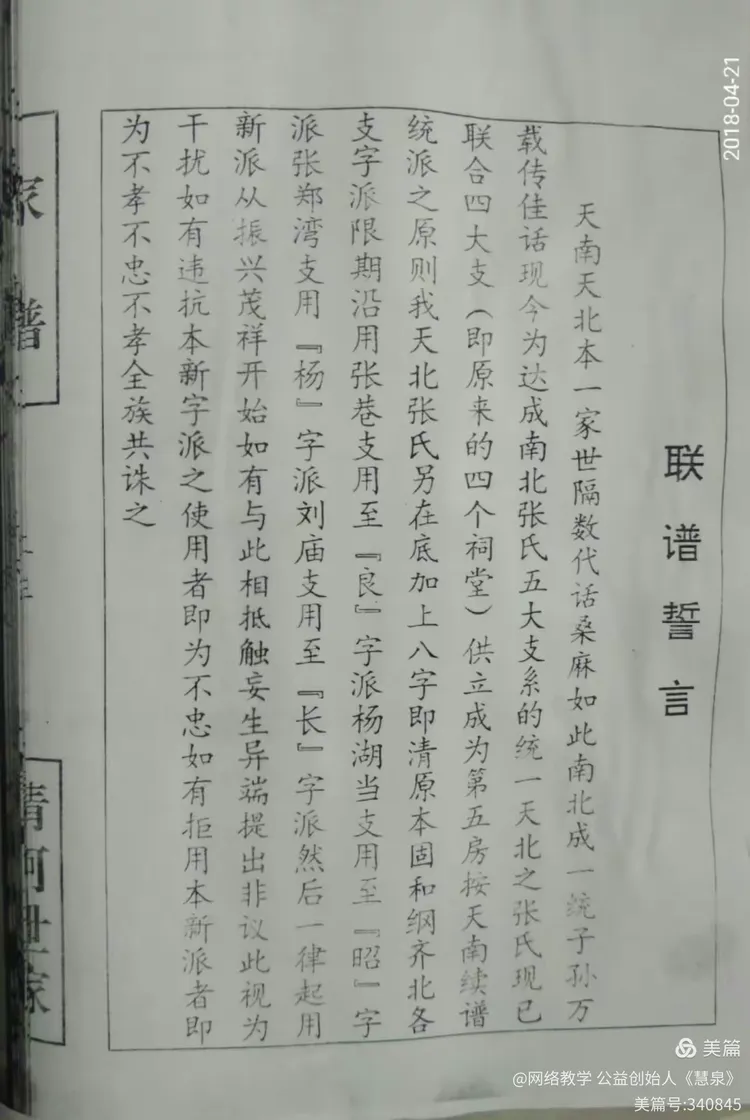 联谱誓言
天南天北本一家世隔数代话桑麻如此南北成一统子孙万
载传佳话现今为达成南北张氏五大支系的统一天北之张氏现已
联合四大支（即原来的四个祠堂）供立成为第五房按天南续谱
统派之原则我天北张氏另在底加上八字即清原本固和纲齐北各
支字派限期沿用张巷支用至『良』字派杨湖当支用至『昭』字
派张郑湾支用『杨』字派刘庙支用至『长』字派然后一律起用
新派从振兴茂祥开始如有与此相抵触妄生异端提出非议此视为
干扰如有违抗本新字派之使用者即为不忠如有拒用本新派者即
为不孝不忠不孝全族共诛之
家谱
清河世家
2018-04-21
美篇
@网络教学 公益创始人《慧泉》
美篇号:340845